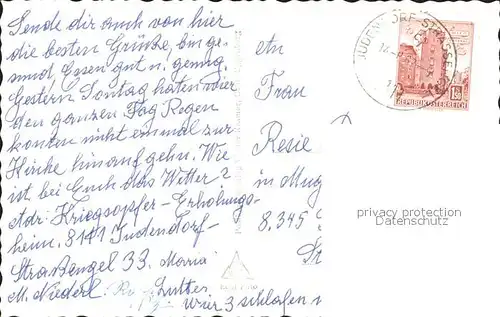 Sende dir auch von hier
die besten Grüße, bin ge-
sund Essen gut u. genug.
Gestern Sontag haten wier
den ganzen Tag Regen
konten nicht emal zur
Kirche hinauf gehn. Wie
ist bei Euch das Wetter?
Adr: Kriegsopfer-Erholungs-
heim, 8141 Judendorf-
Straßengel 33. Maria
M. Niederl.
wier 3 schlafen
An
Frau
Resie
in Mug
8,345
St
JUDENDORF-STRASSENGEL
REPUBLIK ÖSTERREICH
privacy protection
Datenschutz